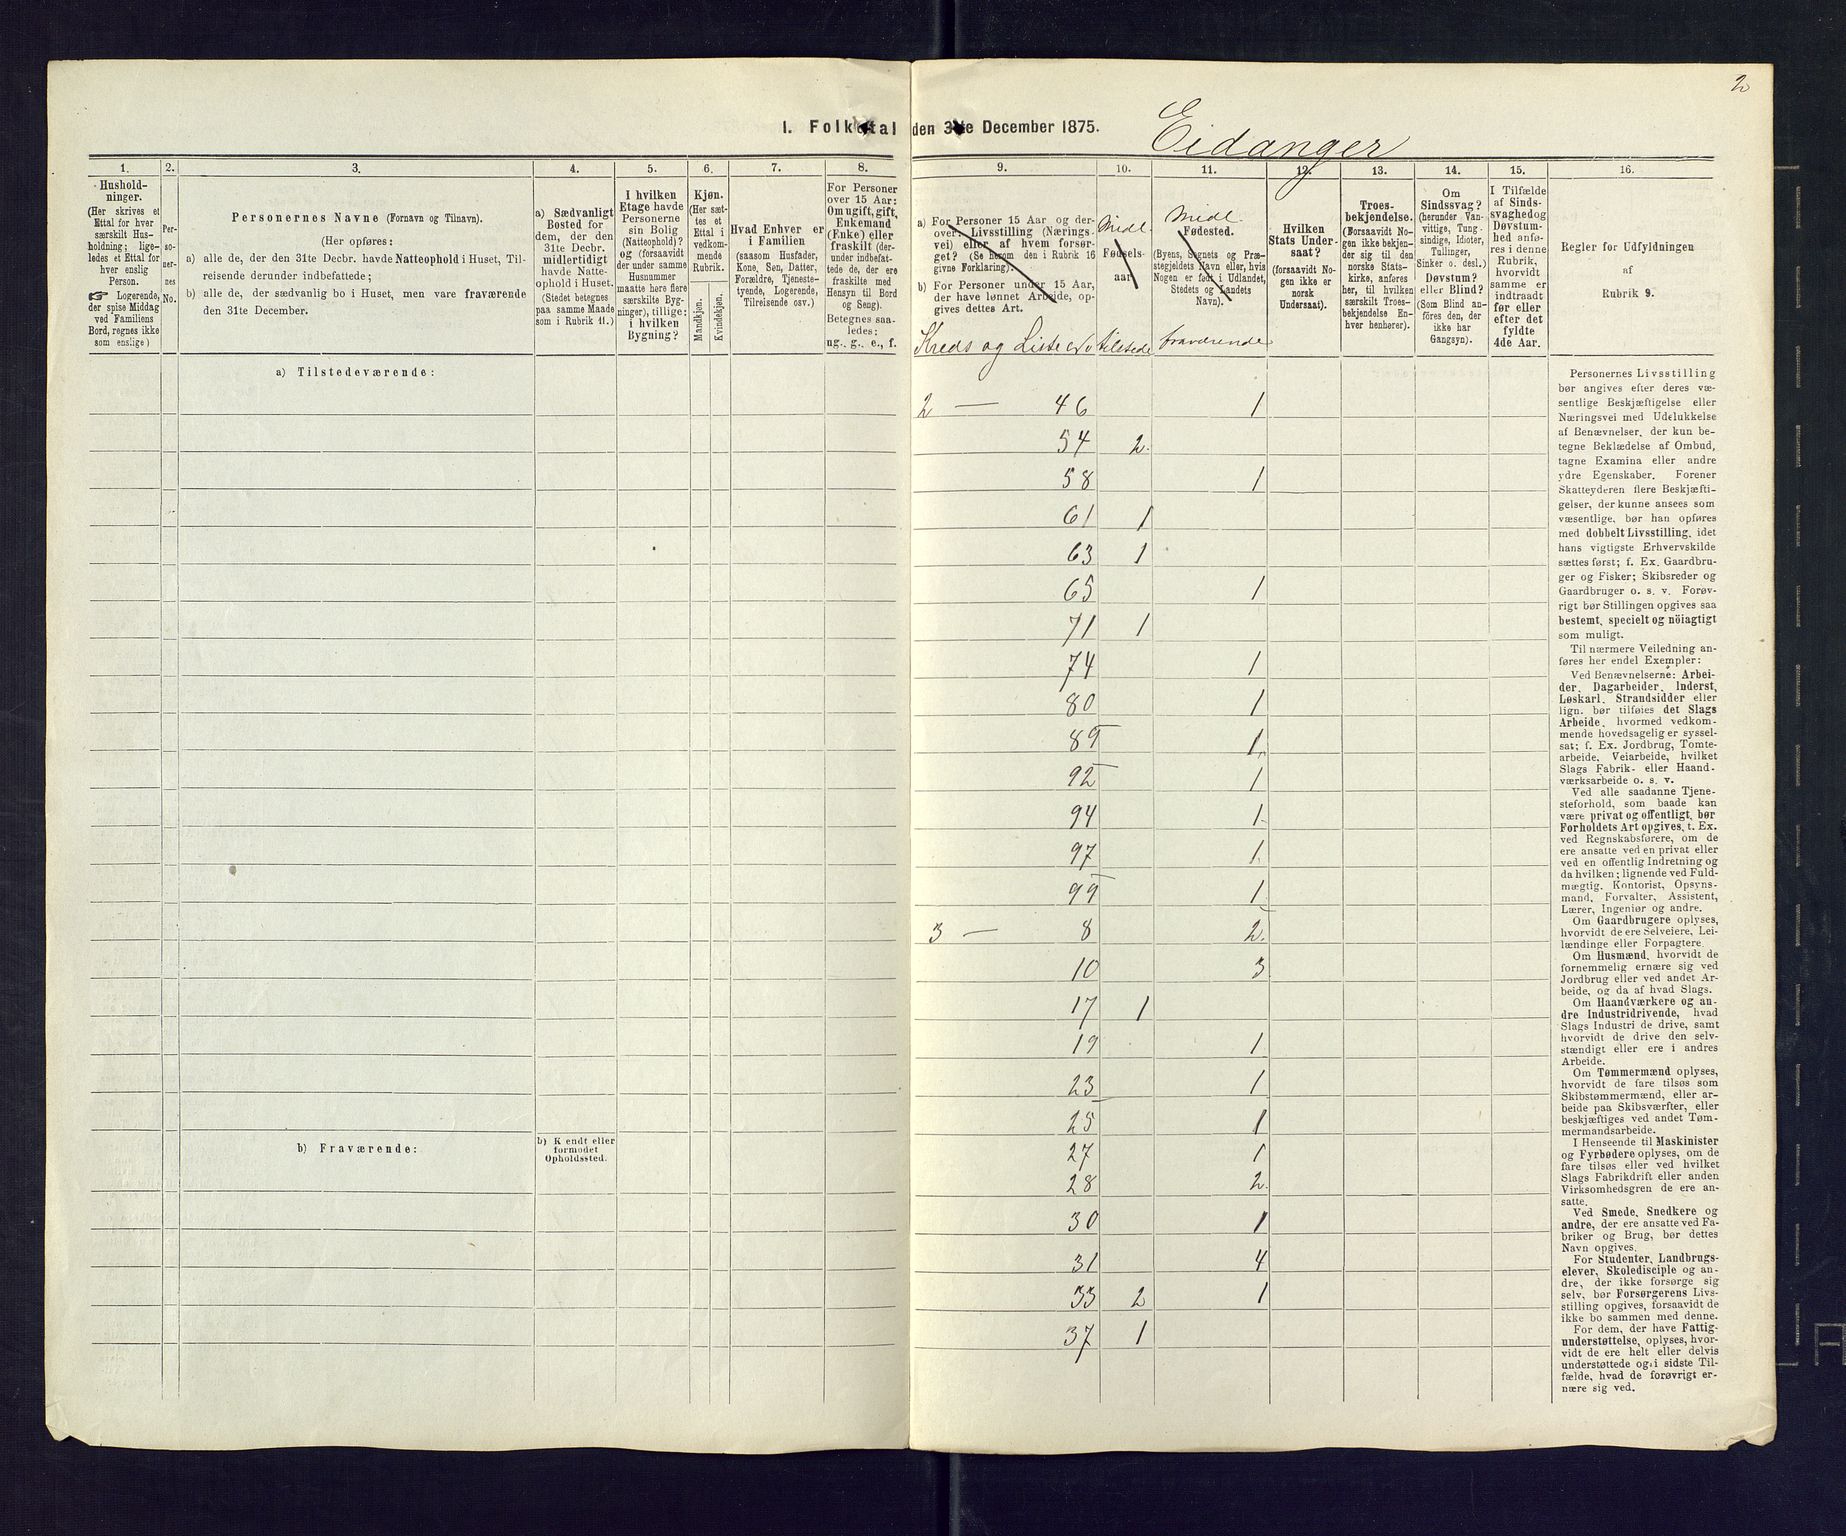 2
I. Folketal den 31te December 1875.
Eidanger
1.
Hushold-
ninger.
(Her skrives et
Ettal for hver
særskilt Hus-
holdning; lige-
ledes et Ettal for
hver enslig
Person.
☞ Logerende,
der spise Middag
ved Familiens
Bord, regnes ikke
som enslige)
2.
Per-
so-
ner-
nes
No.
3.
Personernes Navne (Fornavn og Tilnavn).
(Her opføres:
a) alle de, der den 31te Decbr. havde Natteophold i Huset, Til-
reisende derunder indbefattede;
b) alle de, der sædvanlig bo i Huset, men vare fraværende
den 31te December.
4.
a) Sædvanligt
Bosted for
dem, der den
31te Decbr.
midlertidigt
havde Natte-
ophold i Huset.
(Stedet betegnes
paa samme Maade
som i Rubrik 11.)
5.
I hvilken
Etage havde
Personerne
sin Bolig
(Natteophold)?
og (forsaavidt
der under samme
Husnummer
maatte høre flere
særskilte Byg-
ninger), tillige:
i hvilken
Bygning?
6.
Kjøn.
(Her sæt-
tes et
Ettal i
vedkom-
mende
Rubrik.
Mandkjøn.
Kvindekjøn.
7.
Hvad Enhver er
i Familien
(saasom Husfader,
Kone, Søn, Datter,
Forældre, Tjeneste-
tyende, Logerende,
Tilreisende osv.)
8.
For Personer
over 15 Aar:
Om ugift, gift,
Enkemand
(Enke) eller
fraskilt (der-
under indbefat-
tede de, der ere
fraskilte med
Hensyn til Bord
og Seng).
Betegnes saa-
ledes:
ug., g., e., f.
9.
a) For Personer 15 Aar og der-
over: Livsstilling (Nærings-
vei) eller af hvem forsør-
get? (Se herom den i Rubrik 16
givne Forklaring).
b) For Personer under 15 Aar,
der have lønnet Arbeide, op-
gives dettes Art.
10.
Midl.
Fødsels-
aar.
11.
Midl.
Fødested.
(Byens, Sognets og Præ-
stegjeldets Navn eller, hvis
Nogen er født i Udlandet,
Stedets og Landets
Navn).
12.
Hvilken
Stats Under-
saat?
(forsaavidt No-
gen ikke er
norsk
Undersaat).
13.
Troes-
bekjendelse.
(Forsaavidt No-
gen ikke bekjen-
der sig til den
norske Stats-
kirke, anføres
her, til hvilken
særskilt Troes-
bekjendelse En-
hver henhører).
14.
Om
Sindssvag?
(herunder Van-
vittige, Tung-
sindige, Idioter,
Tullinger,
Sinker o. desl.)
Døvstum?
eller Blind?
(Som Blind an-
føres den, der
ikke har
Gangsyn).
15.
I Tilfælde
af Sinds-
svaghed og
Døvstum-
hed anfø-
res i denne
Rubrik,
hvorvidt
samme er
indtraadt
før eller
efter det
fyldte
4de Aar.
16.
Regler for Udfyldningen
af
Rubrik 9.
Kreds og Liste No tilstede fraværende
a) Tilstedeværende:
2 — 46 1
54 2.
58 1
61 1
63 1
65 1
71 1
74 1
80 1
89 1.
92 1
94 1.
97 1.
99 1.
3 — 8 2.
10 3
17 1
19 1
23 1
25 1
27 1
28 2.
30 1
31 4
33 2 1
37 1
b) Fraværende:
b) Kjendt eller
formodet
Opholdssted.
Personernes Livsstilling
bør angives efter deres væ-
sentlige Beskjæftigelse eller
Næringsvei med Udelukkelse
af Benævnelser, der kun be-
tegne Beklædelse af Ombud,
tagne Examina eller andre
ydre Egenskaber. Forener
Skatteyderen flere Beskjæfti-
gelser, der kunne ansees som
væsentlige, bør han opføres
med dobbelt Livsstilling, idet
hans vigtigste Erhvervskilde
sættes først; f. Ex. Gaardbru-
ger og Fisker; Skibsreder og
Gaardbruger o. s. v. Forøv-
rigt bør Stillingen opgives saa
bestemt, specielt og nöiagtigt
som muligt.
Til nærmere Veiledning an-
føres her endel Exempler:
Ved Benævnelserne: Arbei-
der, Dagarbeider, Inderst,
Løskarl, Strandsidder eller
lign. bør tilføies det Slags
Arbeide, hvormed vedkom-
mende hovedsagelig er syssel-
sat; f. Ex. Jordbrug, Tomte-
arbeide, Veiarbeide, hvilket
Slags Fabrik- eller Haand-
værksarbeide o. s. v.
Ved alle saadanne Tjene-
steforhold, som baade kan
være privat og offentligt, bør
Forholdets Art opgives, t. Ex.
ved Regnskabsførere, om de
ere ansatte ved en privat eller
ved en offentlig Indretning og
da hvilken; lignende ved Fuld-
mægtig, Kontorist, Opsyns-
mand, Forvalter, Assistent,
Lærer, Ingeniør og andre.
Om Gaardbrugere oplyses,
hvorvidt de ere Selveiere, Lei-
lændinge eller Forpagtere.
Om Husmænd, hvorvidt de
fornemmelig ernære sig ved
Jordbrug eller ved andet Ar-
beide, og da af hvad Slags.
Om Haandværkere og an-
dre Industridrivende, hvad
Slags Industri de drive, samt
hvorvidt de drive den selv-
stændigt eller ere i andres
Arbeide.
Om Tømmermænd oplyses,
hvorvidt de fare tilsøs som
Skibstømmermænd, eller ar-
beide paa Skibsværfter, eller
beskjæftiges ved andet Tøm-
mermandsarbeide.
I Henseende til Maskinister
og Fyrbødere oplyses, om de
fare tilsøs eller ved hvilket
Slags Fabrikdrift eller anden
Virksomhedsgren de ere an-
satte.
Ved Smede, Snedkere og
andre, der ere ansatte ved Fa-
briker og Brug, bør dettes
Navn opgives.
For Studenter, Landbrugs-
elever, Skoledisciple og an-
dre, der ikke forsørge sig
selv, bør Forsørgerens Livs-
stilling opgives, forsaavidt de
ikke bo sammen med denne.
For dem, der have Fattig-
understøttelse, oplyses, hvor-
vidt de ere helt eller delvis
understøttede og i sidste Til-
fælde, hvad de forøvrigt er-
nære sig ved.
A